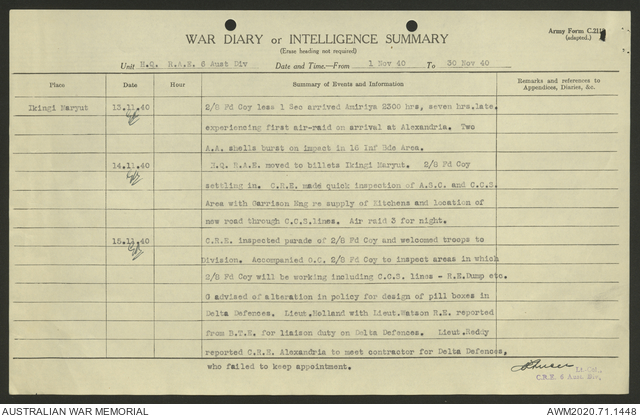 WAR DIARY or INTELLIGENCE SUMMARY
(Erase heading not required)
Army Form C.211
(adapted.)
Unit H.Q. R.A.E. 6 Aust Div Date and Time.—From 1 Nov 40 To 30 Nov 40
Place Date Hour Summary of Events and Information Remarks and references to Appendices, Diaries, &c.
Ikingi Maryut 13.11.40 2/8 Fd Coy less 1 Sec arrived Amiriya 2300 hrs, seven hrs.late.
experiencing first air-raid on arrival at Alexandria. Two
A.A. shells burst on impect in 16 Inf Bde Area.
14.11.40 H.Q. R.A.E. moved to billets Ikingi Maryut. 2/8 Fd Coy
settling in. C.R.E. made quick inspection of A.S.C. and C.C.S.
Area with Garrison Eng re supply of Kitchens and location of
new road through C.C.S.lines. Air raid 3 for night.
15.11.40 C.R.E. inspected parade of 2/8 Fd Coy and welcomed troops to
Division. Accompanied O.C. 2/8 Fd Coy to inspect areas in which
2/8 Fd Coy will be working including C.C.S. lines - R.E.Dump etc.
G advised of alteration in policy for design of pill boxes in
Delta Defences. Lieut.Holland with Lieut.Watson R.E. reported
from B.T.E. for liaison duty on Delta Defences. Lieut.Reddy
reported C.R.E. Alexandria to meet contractor for Delta Defences,
who failed to keep appointment.
Lt Col,
C.R.E. 6 Aust. Div.
AUSTRALIAN WAR MEMORIAL
AWM2020.71.1448